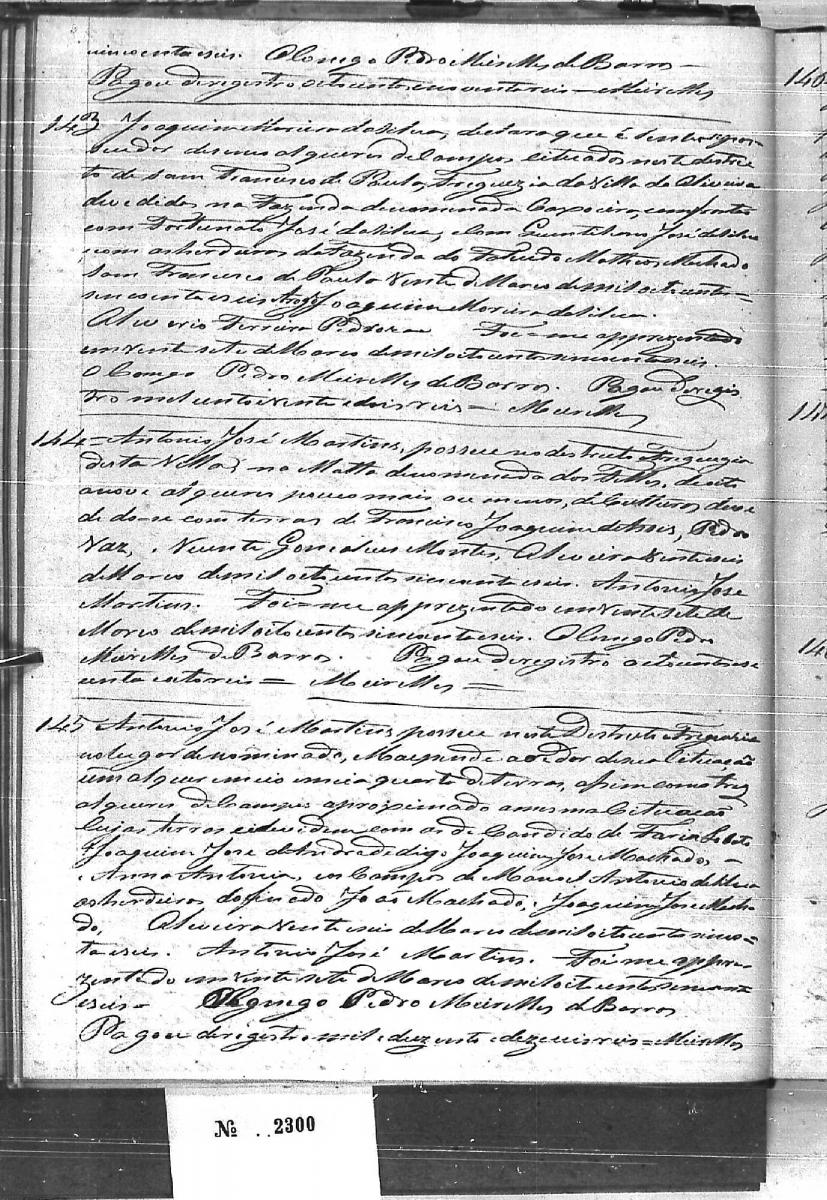 sincoenta e seis. O Conego Pedro Meirelles de Barros
Pagou de registro oitocentos e noventa reis = Meirelles
143 Joaquim Moreira da Silva, declara que é Senhor e pos
suidor de seus alqueres de Campos cituados neste destric
to de Sam Francisco de Paula, Freguezia da Villa da Oliveira
devedidos, na Fazenda denominada Capoeira, comfrontes
com Fortunato José da Silva, e Com Quintiliano José da Silva
com os herdeiros da Fazenda do Falecido Matheos Machado
Sam Francisco de Paula Vinte de Marco de mil oitocentos =
sincoenta e seis Joaquim Moreira da Silva.
Ferreira Pedroza Foi-me apprezentado
em vinte sete de Marco de mil oitocentos sincoenta e seis.
O Conego Pedro Meirelles de Barros. Pagou de regis
tro mil cento e vinte e dois reis = Meirelles
144 = Antonio José Martins, possue no destricto e Freguezia
desta Villa, na Matta denominada dos Telles, de oito
a nove alqueres pouco mais ou menos, de Culturas, devi
de do-se com terras de Francisco Joaquim de Assis, Pedro
Vaz, Vicente Gonçalves Montes, Oliveira Vinte e seis
de Marco de mil oitocentos sincoenta e seis. Antonio José
Martins. Foi-me apprezentado em vinte sete de
Marco de mil oitocentos sincoenta e seis. O Conego Pedro
Meirelles de Barros. Pagou de registro oitocentos e se
enta e reis = Meirelles =
145 Antonio José Martins, possue neste Destricto e Freguezia
no lugar denominado, ao redor de sua Cituação
um alquer e meio e meia quarta de terras, assim como tres
alqueres de Campos aproximado a mesma Cituação
Cujas terras se devedem com as de Candido de Faria Lobato
Joaquim José de Andrade digo Joaquim José Machado, =
e Anna Antonia, e os Campos de Manoel Antonio da Silva
os herdeiros do finado João Machado, e Joaquim José Macha
do, Oliveira Vinte e seis de Marco de mil oitocentos sincoen=
ta e seis. Antonio José Martins. Foi-me appre
zentado em vinte sete de Marco de mil oitocentos sincoenta
e seis = O Conego Pedro Meirelles de Barros
Pagou de registro mil e duzentos e dezeseis reis = Meirelles
140
14
14
№ 2300